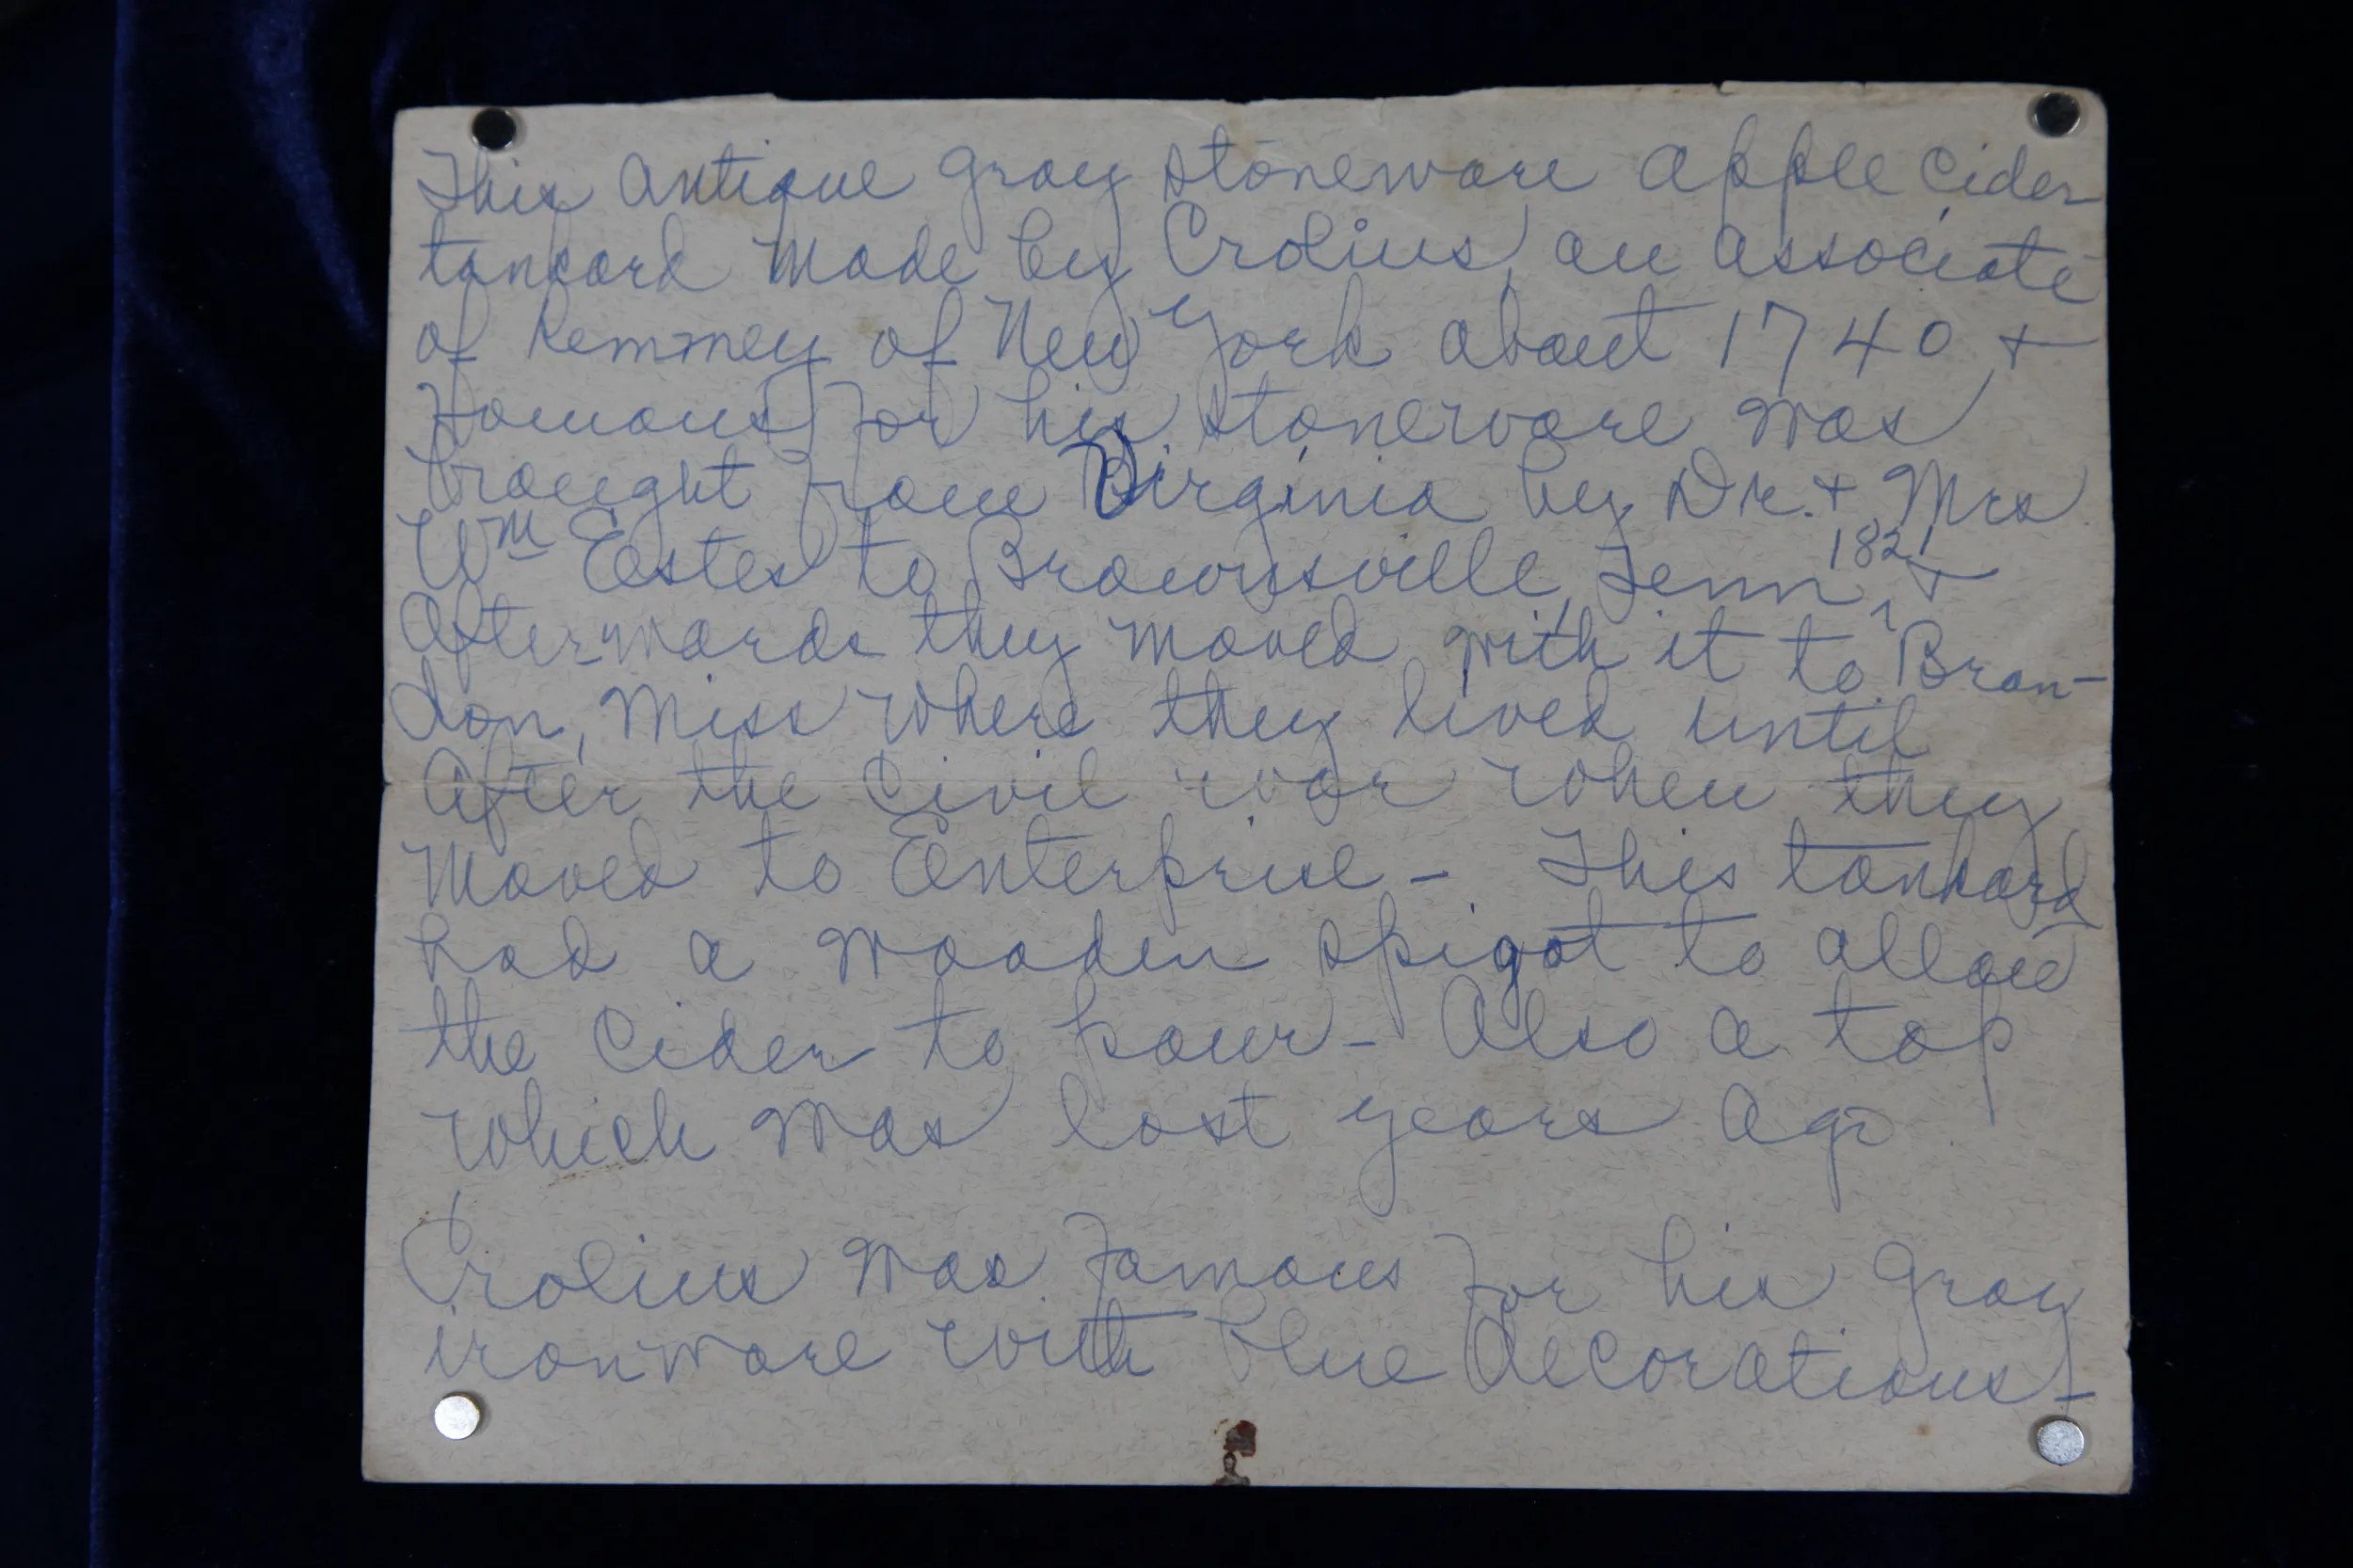 This antique gray stoneware apple cider
tankard made by Crolius, an associate
of Remmey of New York about 1740 +
famous for his stoneware was
brought from Virginia by Dr. + Mrs
Wm Estes to Brownsville, Tenn 1821 +
afterwards they moved with it to Bran-
don, Miss where they lived until
after the Civil war when they
moved to Enterprise - This tankard
had a wooden spigot to allow
the cider to pour - Also a top
which was lost years ago
Crolius was famous for his gray
ironware with blue decorations -